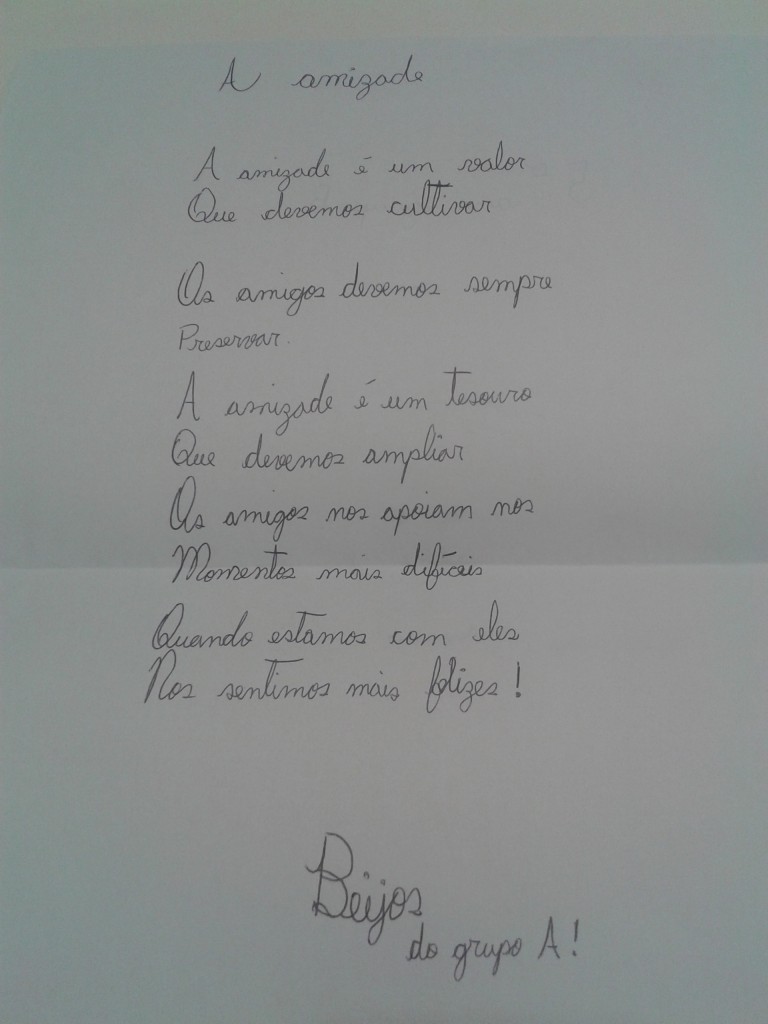 A amizade
A amizade é um valor
Que devemos cultivar
Os amigos devemos sempre
Preservar.
A amizade é um tesouro
Que devemos ampliar
Os amigos nos apoiam nos
Momentos mais difíceis
Quando estamos com eles
Nos sentimos mais felizes!
Beijos
do grupo A!